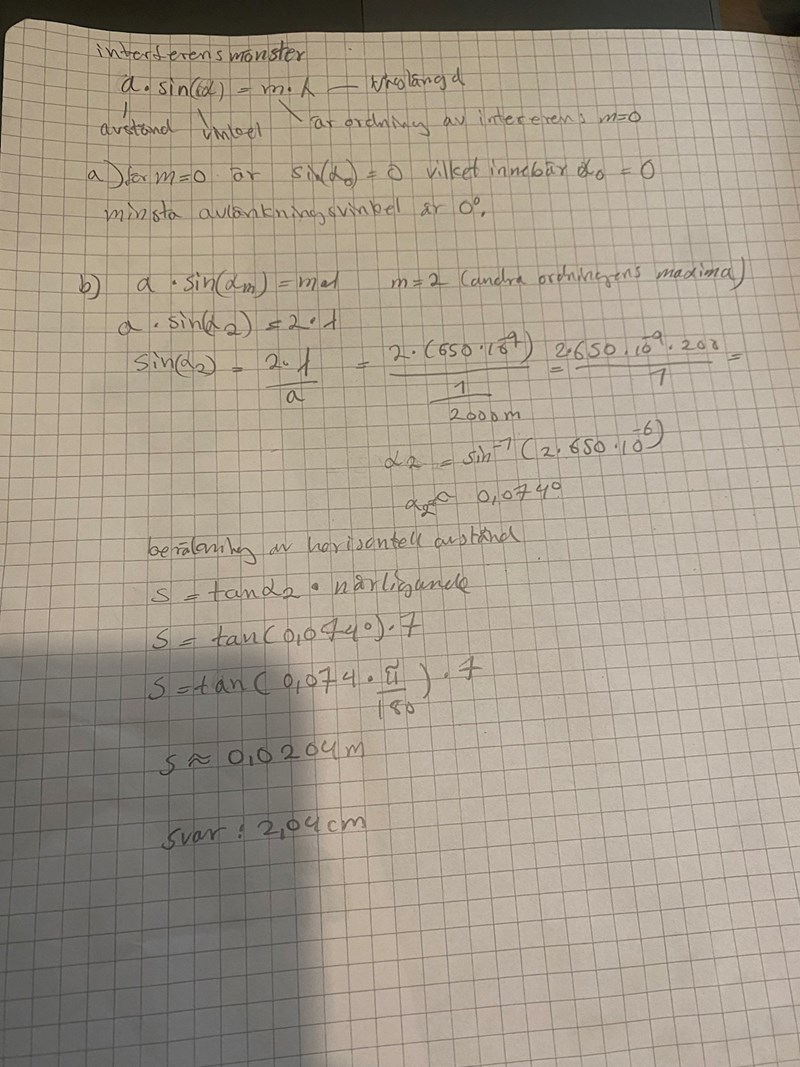 interferensmönster
d · sin(α) = m · λ — våglängd
avstånd vinkel är ordning av interferens m=0
a) för m=0 är sin(α₀) = 0 vilket innebär α₀ = 0
minsta avlänkningsvinkel är 0°.
b) d · sin(αm) = mλ m = 2 (andra ordningens maxima)
d · sin(α2) = 2 · λ
sin(α2) = 2·λ / d = 2·(650·10⁻⁹) / (1 / 2000m) = 2·650·10⁻⁹·200 / 1 =
α2 = sin⁻¹(2·650·10⁻⁶)
α2 = 0,074°
beräkning av horisontell avstånd
s = tanα2 · närliggande
s = tan(0,074°)·7
s = tan(0,074 · π/180) · 7
s ≈ 0,0204m
svar : 2,04cm